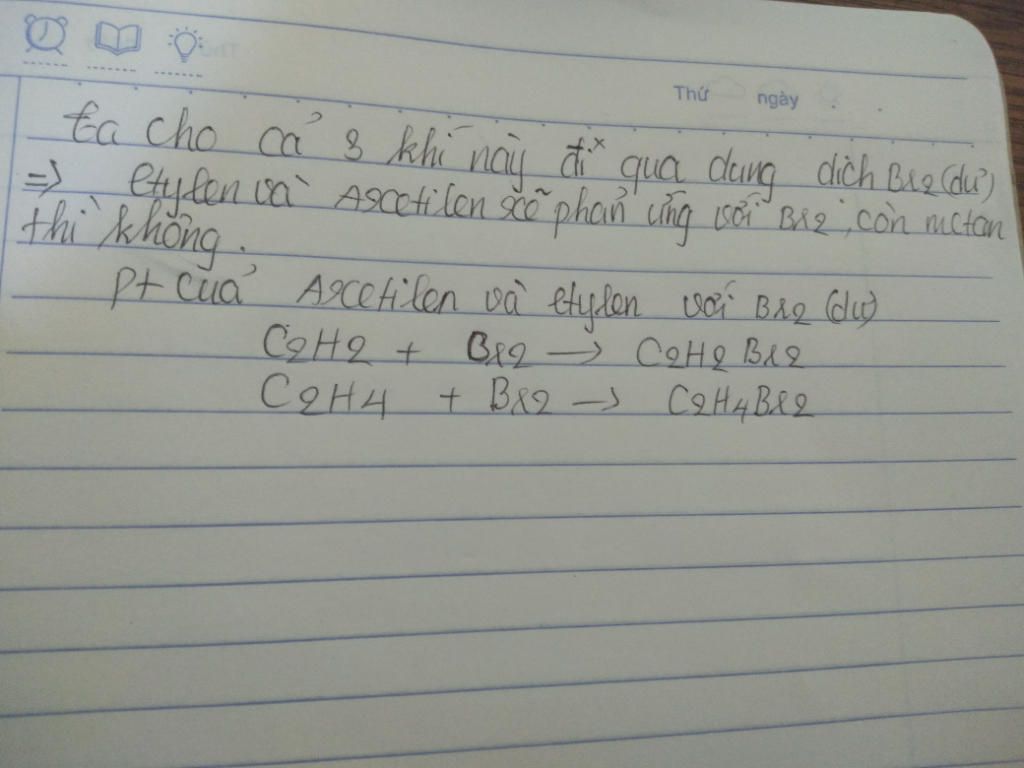 Thứ ngày
ta cho cả 3 khí này đi qua dung dịch Br2 (dư)
=> etylen và Axcetilen sẽ phản ứng với Br2, còn metan
thì không.
pt của Axcetilen và etylen với Br2 (dư)
C2H2 + Br2 → C2H2Br2
C2H4 + Br2 → C2H4Br2